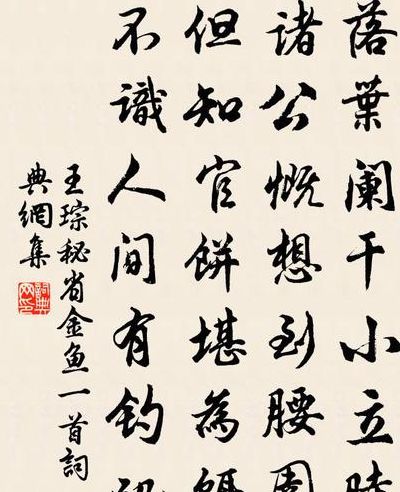 落葉闌干小立
諸公慨想到腰
但知官餅堪為
不識人間有釣
王琮秘省金魚一首詞
典網集